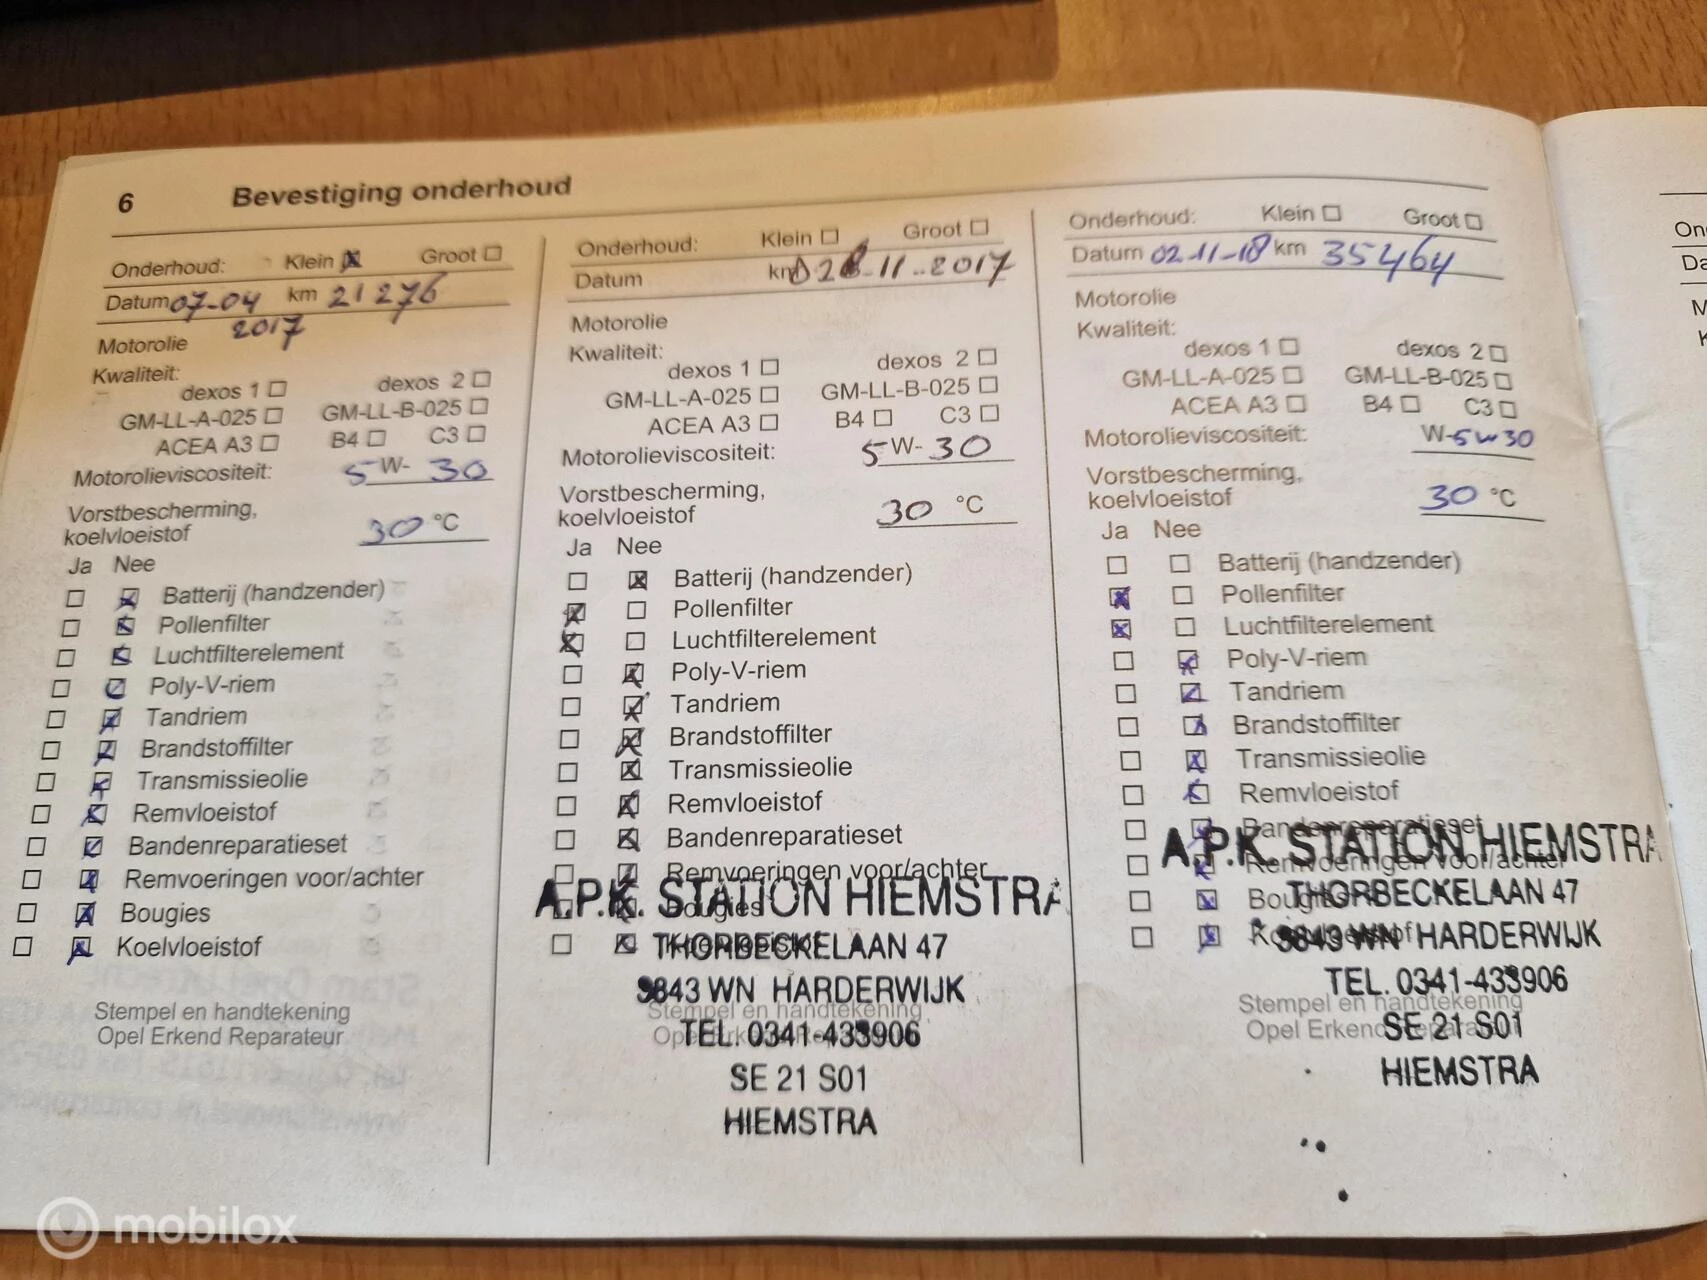 6 Bevestiging onderhoud
Onderhoud: Klein Groot
Datum 07-04 km 21276
2017
Motorolie
Kwaliteit:
dexos 1 dexos 2
GM-LL-A-025 GM-LL-B-025
ACEA A3 B4 C3
Motorolieviscositeit: 5 W- 30
Vorstbescherming,
koelvloeistof 30 °C
Ja Nee
Batterij (handzender)
Pollenfilter
Luchtfilterelement
Poly-V-riem
Tandriem
Brandstoffilter
Transmissieolie
Remvloeistof
Bandenreparatieset
Remvoeringen voor/achter
Bougies
Koelvloeistof
Stempel en handtekening
Opel Erkend Reparateur
Onderhoud: Klein Groot
Datum km 11-2017
Motorolie
Kwaliteit:
dexos 1 dexos 2
GM-LL-A-025 GM-LL-B-025
ACEA A3 B4 C3
Motorolieviscositeit: 5 W- 30
Vorstbescherming,
koelvloeistof 30 °C
Ja Nee
Batterij (handzender)
Pollenfilter
Luchtfilterelement
Poly-V-riem
Tandriem
Brandstoffilter
Transmissieolie
Remvloeistof
Bandenreparatieset
Remvoeringen voor/achter
Bougies
A.P.K. STATION HIEMSTRA
THORBECKELAAN 47
3843 WN HARDERWIJK
Stempel en handtekening
TEL. 0341-433906
SE 21 S01
HIEMSTRA
Onderhoud: Klein Groot
Datum 02-11-18 km 35464
Motorolie
Kwaliteit:
dexos 1 dexos 2
GM-LL-A-025 GM-LL-B-025
ACEA A3 B4 C3
Motorolieviscositeit: W-5w30
Vorstbescherming,
koelvloeistof 30 °C
Ja Nee
Batterij (handzender)
Pollenfilter
Luchtfilterelement
Poly-V-riem
Tandriem
Brandstoffilter
Transmissieolie
Remvloeistof
Bandenreparatieset
A.P.K. STATION HIEMSTRA
Remvoeringen voor/achter
THORBECKELAAN 47
3843 WN HARDERWIJK
TEL. 0341-433906
Stempel en handtekening
Opel Erkend Reparateur
SE 21 S01
HIEMSTRA
mobilox